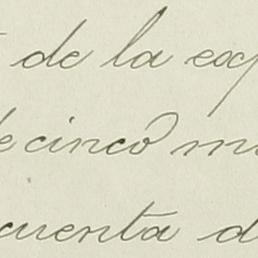 de la exp
decinco m
cuenta d